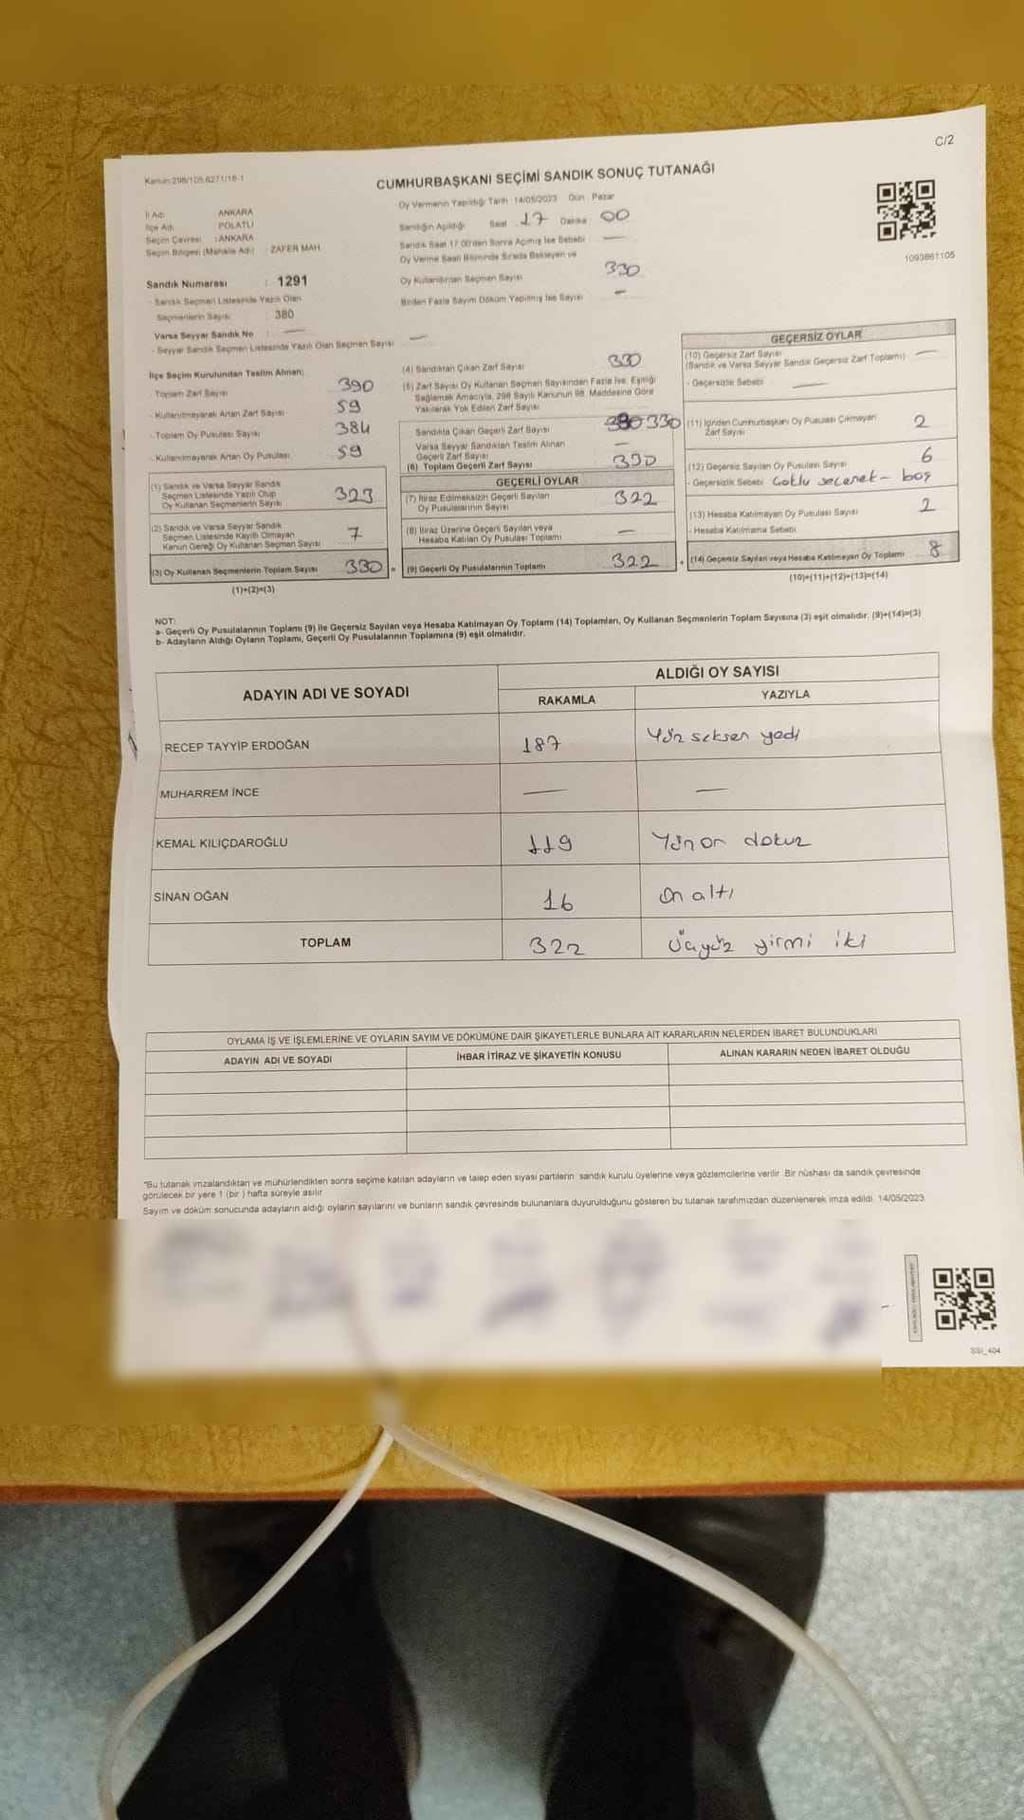 C/2
Kanun:298/105,6271/18-1
CUMHURBAŞKANI SEÇİMİ SANDIK SONUÇ TUTANAĞI
İl Adı: ANKARA
İlçe Adı: POLATLI
Seçim Çevresi :ANKARA
Seçim Bölgesi (Mahalle Adı): ZAFER MAH.
Sandık Numarası : 1291
- Sandık Seçmen Listesinde Yazılı Olan
Seçmenlerin Sayısı : 380
Varsa Seyyar Sandık No : —
- Seyyar Sandık Seçmen Listesinde Yazılı Olan Seçmen Sayısı —
Oy Vermenin Yapıldığı Tarih 14/05/2023 Gün Pazar
Sandığın Açıldığı Saat 17 Dakika 00
Sandık Saat 17.00'den Sonra Açılmış İse Sebebi —
Oy Verme Saati Bitiminde Sırada Bekleyen ve
Oy Kullandırılan Seçmen Sayısı 330
Birden Fazla Sayım Döküm Yapılmış İse Sayısı —
1093861105
İlçe Seçim Kurulundan Teslim Alınan;
Toplam Zarf Sayısı 390
- Kullanılmayarak Artan Zarf Sayısı 59
- Toplam Oy Pusulası Sayısı 384
- Kullanılmayarak Artan Oy Pusulası 59
(1) Sandık ve Varsa Seyyar Sandık
Seçmen Listesinde Yazılı Olup
Oy Kullanan Seçmenlerin Sayısı 323
(2) Sandık ve Varsa Seyyar Sandık
Seçmen Listesinde Kayıtlı Olmayan
Kanun Gereği Oy Kullanan Seçmen Sayısı 7
(3) Oy Kullanan Seçmenlerin Toplam Sayısı 330 =
(1)+(2)=(3)
(4) Sandıktan Çıkan Zarf Sayısı 330
(5) Zarf Sayısı Oy Kullanan Seçmen Sayısından Fazla İse, Eşitliği
Sağlamak Amacıyla, 298 Sayılı Kanunun 98. Maddesine Göre
Yakılarak Yok Edilen Zarf Sayısı
Sandıkta Çıkan Geçerli Zarf Sayısı 330
Varsa Seyyar Sandıktan Teslim Alınan
Geçerli Zarf Sayısı —
(6) Toplam Geçerli Zarf Sayısı 330
GEÇERLİ OYLAR
(7) İtiraz Edilmeksizin Geçerli Sayılan
Oy Pusulalarının Sayısı 322
(8) İtiraz Üzerine Geçerli Sayılan veya
Hesaba Katılan Oy Pusulası Toplamı —
(9) Geçerli Oy Pusulalarının Toplamı 322 +
GEÇERSİZ OYLAR
(10) Geçersiz Zarf Sayısı
(Sandık ve Varsa Seyyar Sandık Geçersiz Zarf Toplamı) —
- Geçersizlik Sebebi —
(11) İçinden Cumhurbaşkanı Oy Pusulası Çıkmayan
Zarf Sayısı 2
(12) Geçersiz Sayılan Oy Pusulası Sayısı 6
- Geçersizlik Sebebi Çoklu seçenek - boş
(13) Hesaba Katılmayan Oy Pusulası Sayısı 2
- Hesaba Katılmama Sebebi
(14) Geçersiz Sayılan veya Hesaba Katılmayan Oy Toplamı 8
(10)+(11)+(12)+(13)=(14)
NOT:
a- Geçerli Oy Pusulalarının Toplamı (9) ile Geçersiz Sayılan veya Hesaba Katılmayan Oy Toplamı (14) Toplamları, Oy Kullanan Seçmenlerin Toplam Sayısına (3) eşit olmalıdır. (9)+(14)=(3)
b- Adayların Aldığı Oyların Toplamı, Geçerli Oy Pusulalarının Toplamına (9) eşit olmalıdır.
ADAYIN ADI VE SOYADI ALDIĞI OY SAYISI
RAKAMLA YAZIYLA
RECEP TAYYİP ERDOĞAN 187 Yüz seksen yedi
MUHARREM İNCE — —
KEMAL KILIÇDAROĞLU 119 Yüz on dokuz
SİNAN OĞAN 16 On altı
TOPLAM 322 Üçyüz yirmi iki
OYLAMA İŞ VE İŞLEMLERİNE VE OYLARIN SAYIM VE DÖKÜMÜNE DAİR ŞİKAYETLERLE BUNLARA AİT KARARLARIN NELERDEN İBARET BULUNDUKLARI
ADAYIN ADI VE SOYADI İHBAR İTİRAZ VE ŞİKAYETİN KONUSU ALINAN KARARIN NEDEN İBARET OLDUĞU
"Bu tutanak imzalandıktan ve mühürlendikten sonra seçime katılan adayların ve talep eden siyasi partilerin sandık kurulu üyelerine veya gözlemcilerine verilir. Bir nüshası da sandık çevresinde
görülecek bir yere 1 (bir ) hafta süreyle asılır.
Sayım ve döküm sonucunda adayların aldığı oyların sayılarını ve bunların sandık çevresinde bulunanlara duyurulduğunu gösteren bu tutanak tarafımızdan düzenlenerek imza edildi. 14/05/2023
SSI_404